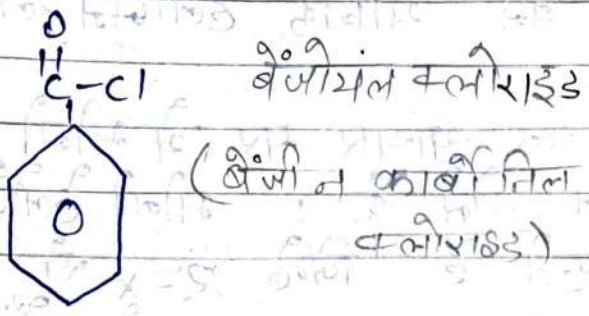 O
||
C-Cl
बेंजोयल क्लोराइड
(बेंजीन कार्बोनिल
क्लोराइड)